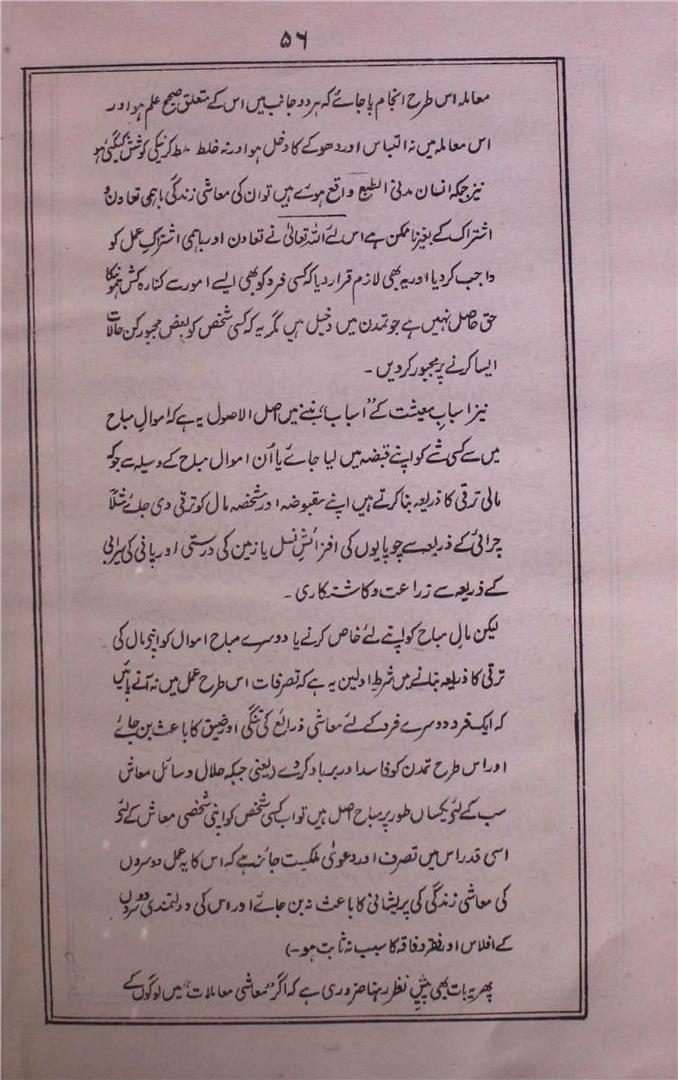 ۵۶
معاملہ اس طرح انجام پا جائے کہ ہر دو جانب میں اس کے متعلق صحیح علم ہو اور
اس معاملہ میں نہ التباس اور دھوکے کا دخل ہو اور نہ خلط ملط کرنیکی کوشش کیگئی ہو
نیز جبکہ انسان مدنی الطبع واقع ہوئے ہیں تو ان کی معاشی زندگی باہمی تعاون و
اشتراک کے بغیر ناممکن ہے اس لئے اللہ تعالیٰ نے تعاون اور باہمی اشتراکِ عمل کو
واجب کر دیا اور یہ بھی لازم قرار دیا کہ کسی فرد کو بھی ایسے امور سے کنارہ کش ہونیکا
حق حاصل نہیں ہے جو تمدن میں دخیل ہیں مگر یہ کہ کسی شخص کو بعض مجبور کن حالات
ایسا کرنے پر مجبور کر دیں ۔
نیز اسبابِ معیشت کے "اسباب" بننے میں اصل الاصول یہ ہے کہ اموالِ مباح
میں سے کسی شے کو اپنے قبضہ میں لیا جائے یا اُن اموال مباح کے وسیلہ سے جو کہ
مالی ترقی کا ذریعہ بنا کرتے ہیں اپنے مقبوضہ اور مختصہ مال کو ترقی دی جائے مثلاً
چرائی کے ذریعہ سے چوپایوں کی افزائشِ نسل یا زمین کی درستی اور پانی کی سیرابی
کے ذریعہ سے زراعت و کاشتکاری ۔
لیکن مالِ مباح کو اپنے لئے خاص کرنے یا دوسرے مباح اموال کو اپنے مال کی
ترقی کا ذریعہ بنانے میں شرطِ اولین یہ ہے کہ تصرفات اس طرح عمل میں نہ آنے پائیں
کہ ایک فرد دوسرے فرد کے لئے معاشی ذرائع کی تنگی اور ضیق کا باعث بن جائے
اور اس طرح تمدن کو فاسد اور برباد کر دے (یعنی جبکہ حلال وسائل معاش
سب کے لئے یکساں طور پر مباح اصل ہیں تو اب کسی شخص کو اپنی شخصی معاش کے لئے
اسی قدر اس میں تصرف اور دعویٰ ملکیت جائز ہے کہ اس کا یہ عمل دوسروں
کی معاشی زندگی کی پریشانی کا باعث نہ بن جائے اور اس کی دولتمندی دوسروں
کے افلاس اور فقر و فاقہ کا سبب نہ ثابت ہو ۔)
پھر یہ بات بھی پیشِ نظر رہنا ضروری ہے کہ اگر "معاشی معاملات" میں لوگوں کے